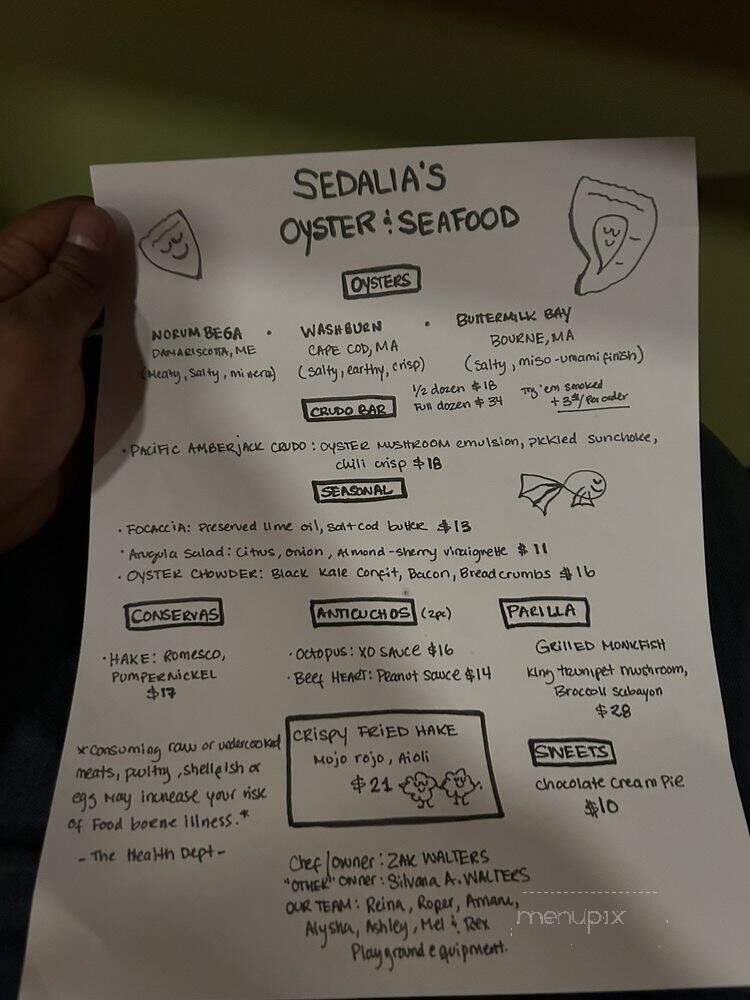 SEDALIA'S
OYSTER & SEAFOOD
OYSTERS
NORUMBEGA • WASHBURN • BUTTERMILK BAY
DAMARISCOTTA, ME CAPE COD, MA BOURNE, MA
(Meaty, salty, mineral) (salty, earthy, crisp) (salty, miso-umami finish)
1/2 dozen $18 Try 'em smoked
CRUDO BAR Full dozen $34 + 3$/per order
• PACIFIC AMBERJACK CRUDO: OYSTER MUSHROOM emulsion, pickled sunchoke,
chili crisp $18
SEASONAL
• FOCACCIA: Preserved lime oil, salt cod butter $13
• Arugula Salad: Citrus, onion, Almond-sherry vinaigrette $11
• OYSTER CHOWDER: Black Kale Confit, Bacon, Breadcrumbs $16
CONSERVAS ANTICUCHOS (2pc) PARILLA
• HAKE: Romesco,
PUMPERNICKEL
$17
• Octopus: XO SAUCE $16
• Beef HEART: Peanut sauce $14
GRILLED MONKFISH
King trumpet mushroom,
Broccoli sabayon
$28
*Consuming raw or undercooked
meats, poultry, shellfish or
egg may increase your risk
of Food borne illness.*
- The Health Dept -
CRISPY FRIED HAKE
Mojo rojo, Aioli
$21
SWEETS
chocolate cream pie
$10
Chef/owner: ZAK WALTERS
"OTHER" Owner: Silvana A. WALTERS
OUR TEAM: Reina, Roper, Amani,
Alysha, Ashley, Mel & Rex
Playground equipment.
menupix